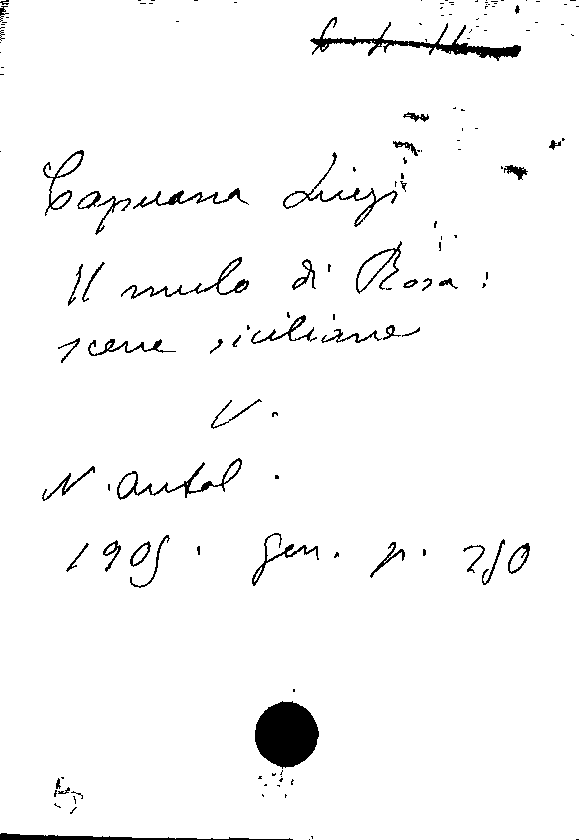 Capuana Luigi
Il mulo di Rosa:
scene siciliane
V.
N. Antol.
1905. gen. p. 250